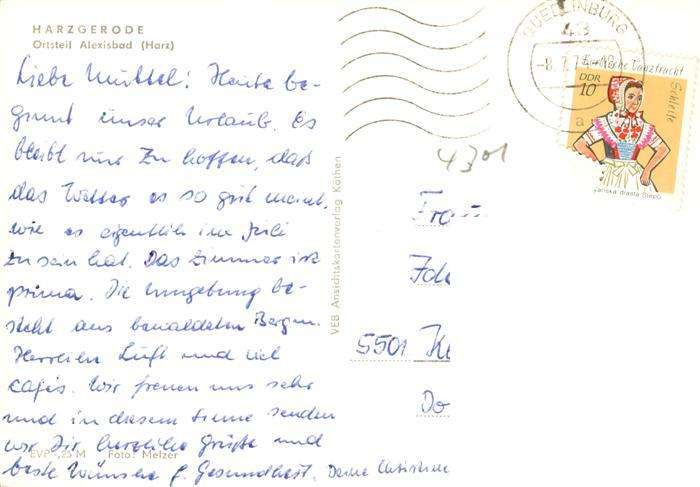 HARZGERODE
Ortsteil Alexisbad (Harz)
Liebe Muttel! Heute be-
ginnt unser Urlaub. Es
bleibt nur zu hoffen, daß
das Wetter es so gut meint,
wie es eigentlich im Juli
zu sein hat. Das Zimmer ist
prima. Die Umgebung be-
steht aus bewaldeten Bergen.
Herrliche Luft und viel
Cafés. Wir freuen uns sehr
und in diesem Sinne senden
wir Dir herzliche Grüße und
beste Wünsche f. Gesundheit. Deine
EVP -,25 M Foto: Melzer
VEB Ansichtskartenverlag Köthen
QUEDLINBURG
43
-8.7.7
a
4301
Sorbische Tanztracht
Schleife
DDR
10
drasta Slepo
5501